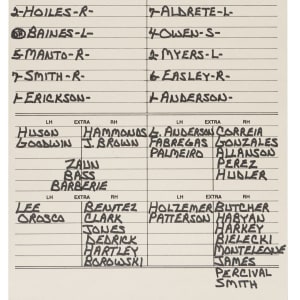 2-HOILES-R- 7-ALDRETE-L-
BAINES-L- 4-OWEN-S-
5-MANTO-R- 2-MYERS-L-
7-SMITH-R- 6-EASLEY-R-
1-ERICKSON- 1-ANDERSON-
LH EXTRA RH LH EXTRA RH
HUSON HAMMONDS G. ANDERSON CORREIA
GOODWIN J. BROWN FABREGAS GONZALES
PALMEIRO ALLANSON
ZAUN PEREZ
BASS HUDLER
BARBERIE
LH EXTRA RH LH EXTRA RH
LEE BENITEZ HOLZEMER BUTCHER
OROSCO CLARK PATTERSON HABYAN
JONES HARKEY
DEDRICK BIELECKI
HARTLEY MONTELEONE
BOROWSKI JAMES
PERCIVAL
SMITH